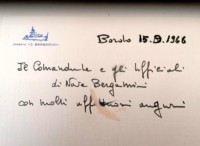 Bordo 15.9.1966
Il Comandante e gli Ufficiali
di Nave Bergamini
con molti affettuosi auguri